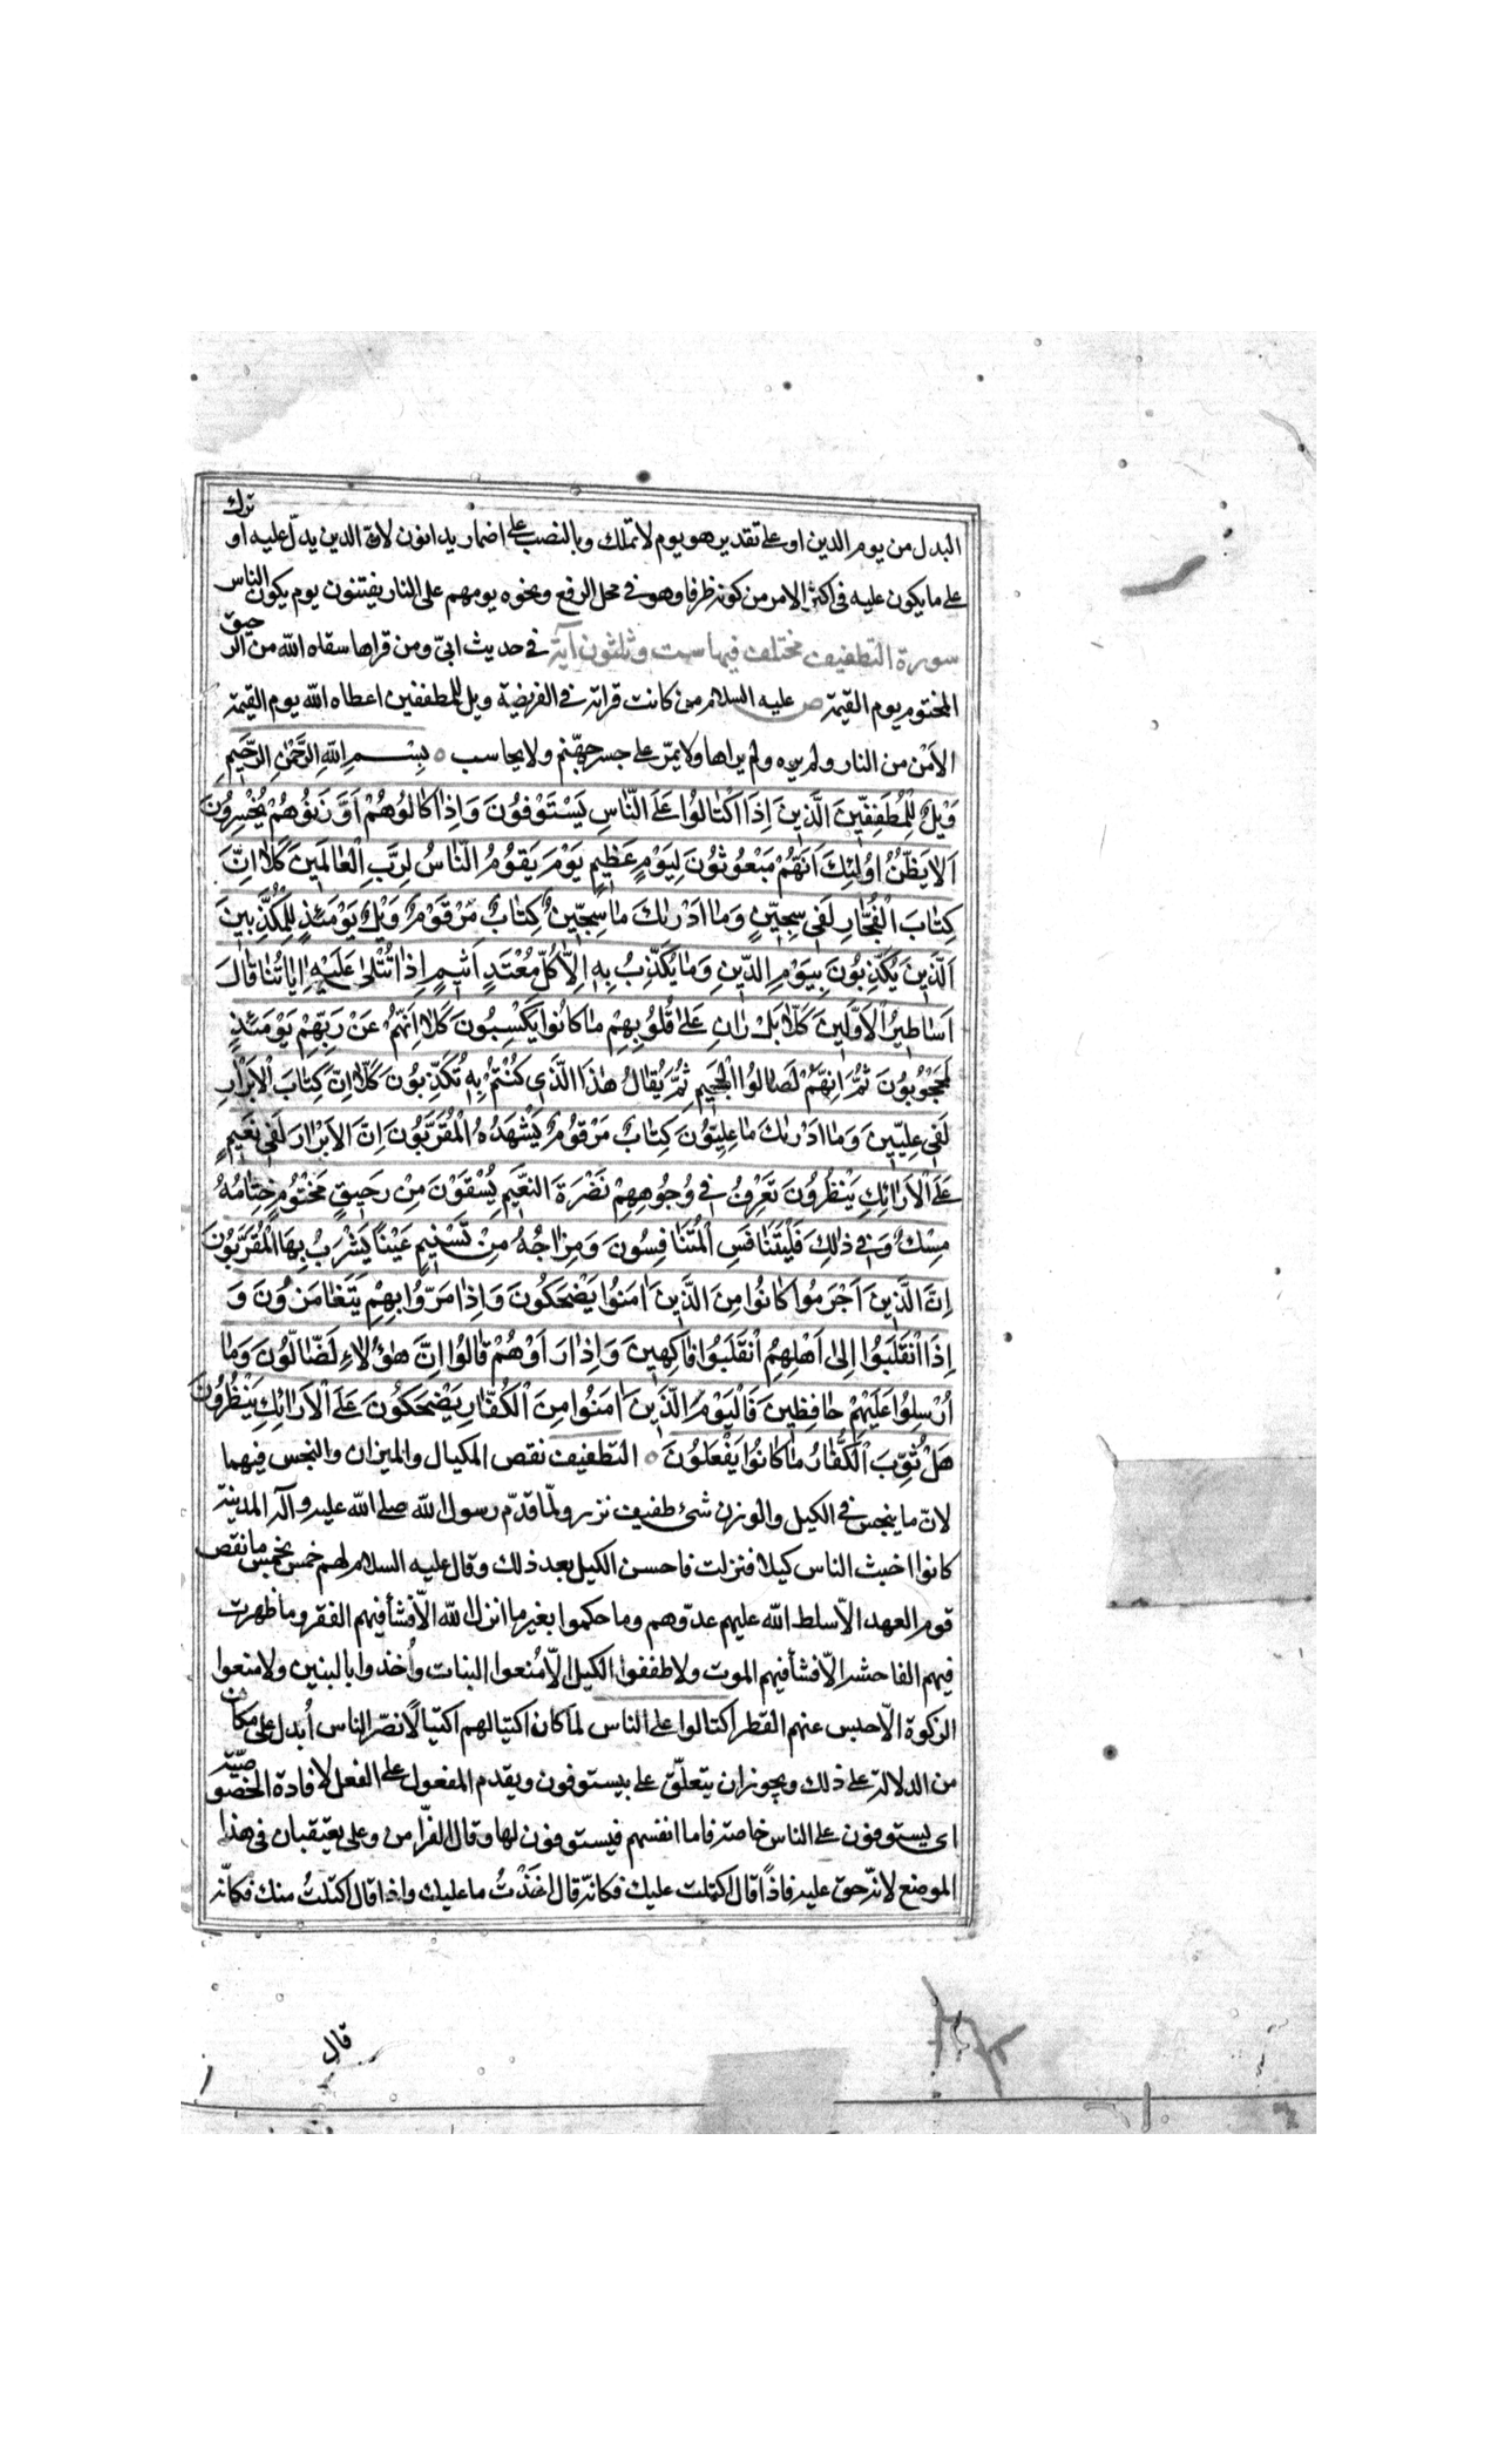 البدل من يوم الدين او على تقدير هو يوم لا تملك وبالنصب على اضمار يدانون لانّ الدين يدلّ عليه او ترك
على ما يكون عليه فى اكثر الامر من كونه ظرفا وهو فى محل الرفع ونحوه يوم هم على النار يفتنون يوم يكون الناس
سورة التطفيف مختلف فيها ست وثلثون آية فى حديث ابىّ ومن قراها سقاه الله من الرحيق
المختوم يوم القيمة ص عليه السلام من كانت قراته فى الفريضة ويل للمطففين اعطاه الله يوم القيمة
الاَمْن من النار ولم يره ولم يراها ولا يمرّ على جسر جهنّم ولا يحاسب ٥ بِسْمِ اللهِ الرَّحْمٰنِ الرَّحٖيمِ
وَيْلٌ لِلْمُطَفِّفٖينَ اَلَّذٖينَ اِذَا اكْتٰالُوا عَلَى النّٰاسِ يَسْتَوْفُونَ وَاِذٰا كٰالُوهُمْ اَوْ وَزَنُوهُمْ يُخْسِرُونَ
اَلٰا يَظُنُّ اُولٰئِكَ اَنَّهُمْ مَبْعُوثُونَ لِيَوْمٍ عَظٖيمٍ يَوْمَ يَقُومُ النّٰاسُ لِرَبِّ الْعٰالَمٖينَ كَلّٰا اِنَّ
كِتٰابَ الْفُجّٰارِ لَفٖى سِجّٖينٍ وَمٰا اَدْرٰيكَ مٰا سِجّٖينٌ كِتٰابٌ مَرْقُومٌ وَيْلٌ يَوْمَئِذٍ لِلْمُكَذِّبٖينَ
اَلَّذٖينَ يُكَذِّبُونَ بِيَوْمِ الدّٖينِ وَمٰا يُكَذِّبُ بِهٖ اِلّٰا كُلُّ مُعْتَدٍ اَثٖيمٍ اِذٰا تُتْلٰى عَلَيْهِ اٰيٰاتُنٰا قٰالَ
اَسٰاطٖيرُ الْاَوَّلٖينَ كَلّٰا بَلْ رٰانَ عَلٰى قُلُوبِهِمْ مٰا كٰانُوا يَكْسِبُونَ كَلّٰا اِنَّهُمْ عَنْ رَبِّهِمْ يَوْمَئِذٍ
لَمَحْجُوبُونَ ثُمَّ اِنَّهُمْ لَصٰالُوا الْجَحٖيمِ ثُمَّ يُقٰالُ هٰذَا الَّذٖى كُنْتُمْ بِهٖ تُكَذِّبُونَ كَلّٰا اِنَّ كِتٰابَ الْاَبْرٰارِ
لَفٖى عِلِّيّٖينَ وَمٰا اَدْرٰيكَ مٰا عِلِّيُّونَ كِتٰابٌ مَرْقُومٌ يَشْهَدُهُ الْمُقَرَّبُونَ اِنَّ الْاَبْرٰارَ لَفٖى نَعٖيمٍ
عَلَى الْاَرٰائِكِ يَنْظُرُونَ تَعْرِفُ فٖى وُجُوهِهِمْ نَضْرَةَ النَّعٖيمِ يُسْقَوْنَ مِنْ رَحٖيقٍ مَخْتُومٍ خِتٰامُهُ
مِسْكٌ وَفٖى ذٰلِكَ فَلْيَتَنٰافَسِ الْمُتَنٰافِسُونَ وَمِزٰاجُهُ مِنْ تَسْنٖيمٍ عَيْنًا يَشْرَبُ بِهَا الْمُقَرَّبُونَ
اِنَّ الَّذٖينَ اَجْرَمُوا كٰانُوا مِنَ الَّذٖينَ اٰمَنُوا يَضْحَكُونَ وَاِذٰا مَرُّوا بِهِمْ يَتَغٰامَزُونَ وَ
اِذَا انْقَلَبُوا اِلٰى اَهْلِهِمُ انْقَلَبُوا فٰاكِهٖينَ وَاِذٰا رَاَوْهُمْ قٰالُوا اِنَّ هٰؤُلٰاءِ لَضٰالُّونَ وَمٰا
اُرْسِلُوا عَلَيْهِمْ حٰافِظٖينَ فَالْيَوْمَ الَّذٖينَ اٰمَنُوا مِنَ الْكُفّٰارِ يَضْحَكُونَ عَلَى الْاَرٰائِكِ يَنْظُرُونَ
هَلْ ثُوِّبَ الْكُفّٰارُ مٰا كٰانُوا يَفْعَلُونَ ٥ التطفيف نقص المكيال والميزان والبخس فيهما
لانّ ما يبخس فى الكيل والوزن شئ طفيف نزر ولمّا قدّم رسول الله صلى الله عليه وآله المدينة
كانوا اخبث الناس كيلا فنزلت فاحسن الكيل بعد ذلك وقال عليه السلام لهم خمس بخمس ما نقص
قوم العهد الّا سلط الله عليهم عدوّهم وما حكموا بغير ما انزل الله الّا فشأ فيهم الفقر وما ظهرت
فيهم الفاحشة الّا فشأ فيهم الموت ولا طففوا الكيل الّا مُنعوا البنات وأُخذوا بالبنين ولا منعوا
الزكوة الّا حبس عنهم القطر اكتالوا على الناس لما كان اكتيالهم اكتيالًا نصّر الناس أُبدل على مكان من
من الدلالة على ذلك ويجوز ان يتعلّق على بيستوفون ويقدم المفعول على الفعل لافادة الخصوصيّة
اى يستوفون على الناس خاصة فاما انفسهم فيستوفون لها وقال الفرّا من وعلى يعتقبان فى هذا
الموضع لانّه حق عليه فاذًا قال اكتلت عليك فكانّه قال اخَذْتُ ما عليك واذا قال اكتلتُ منك فكانّه
قال